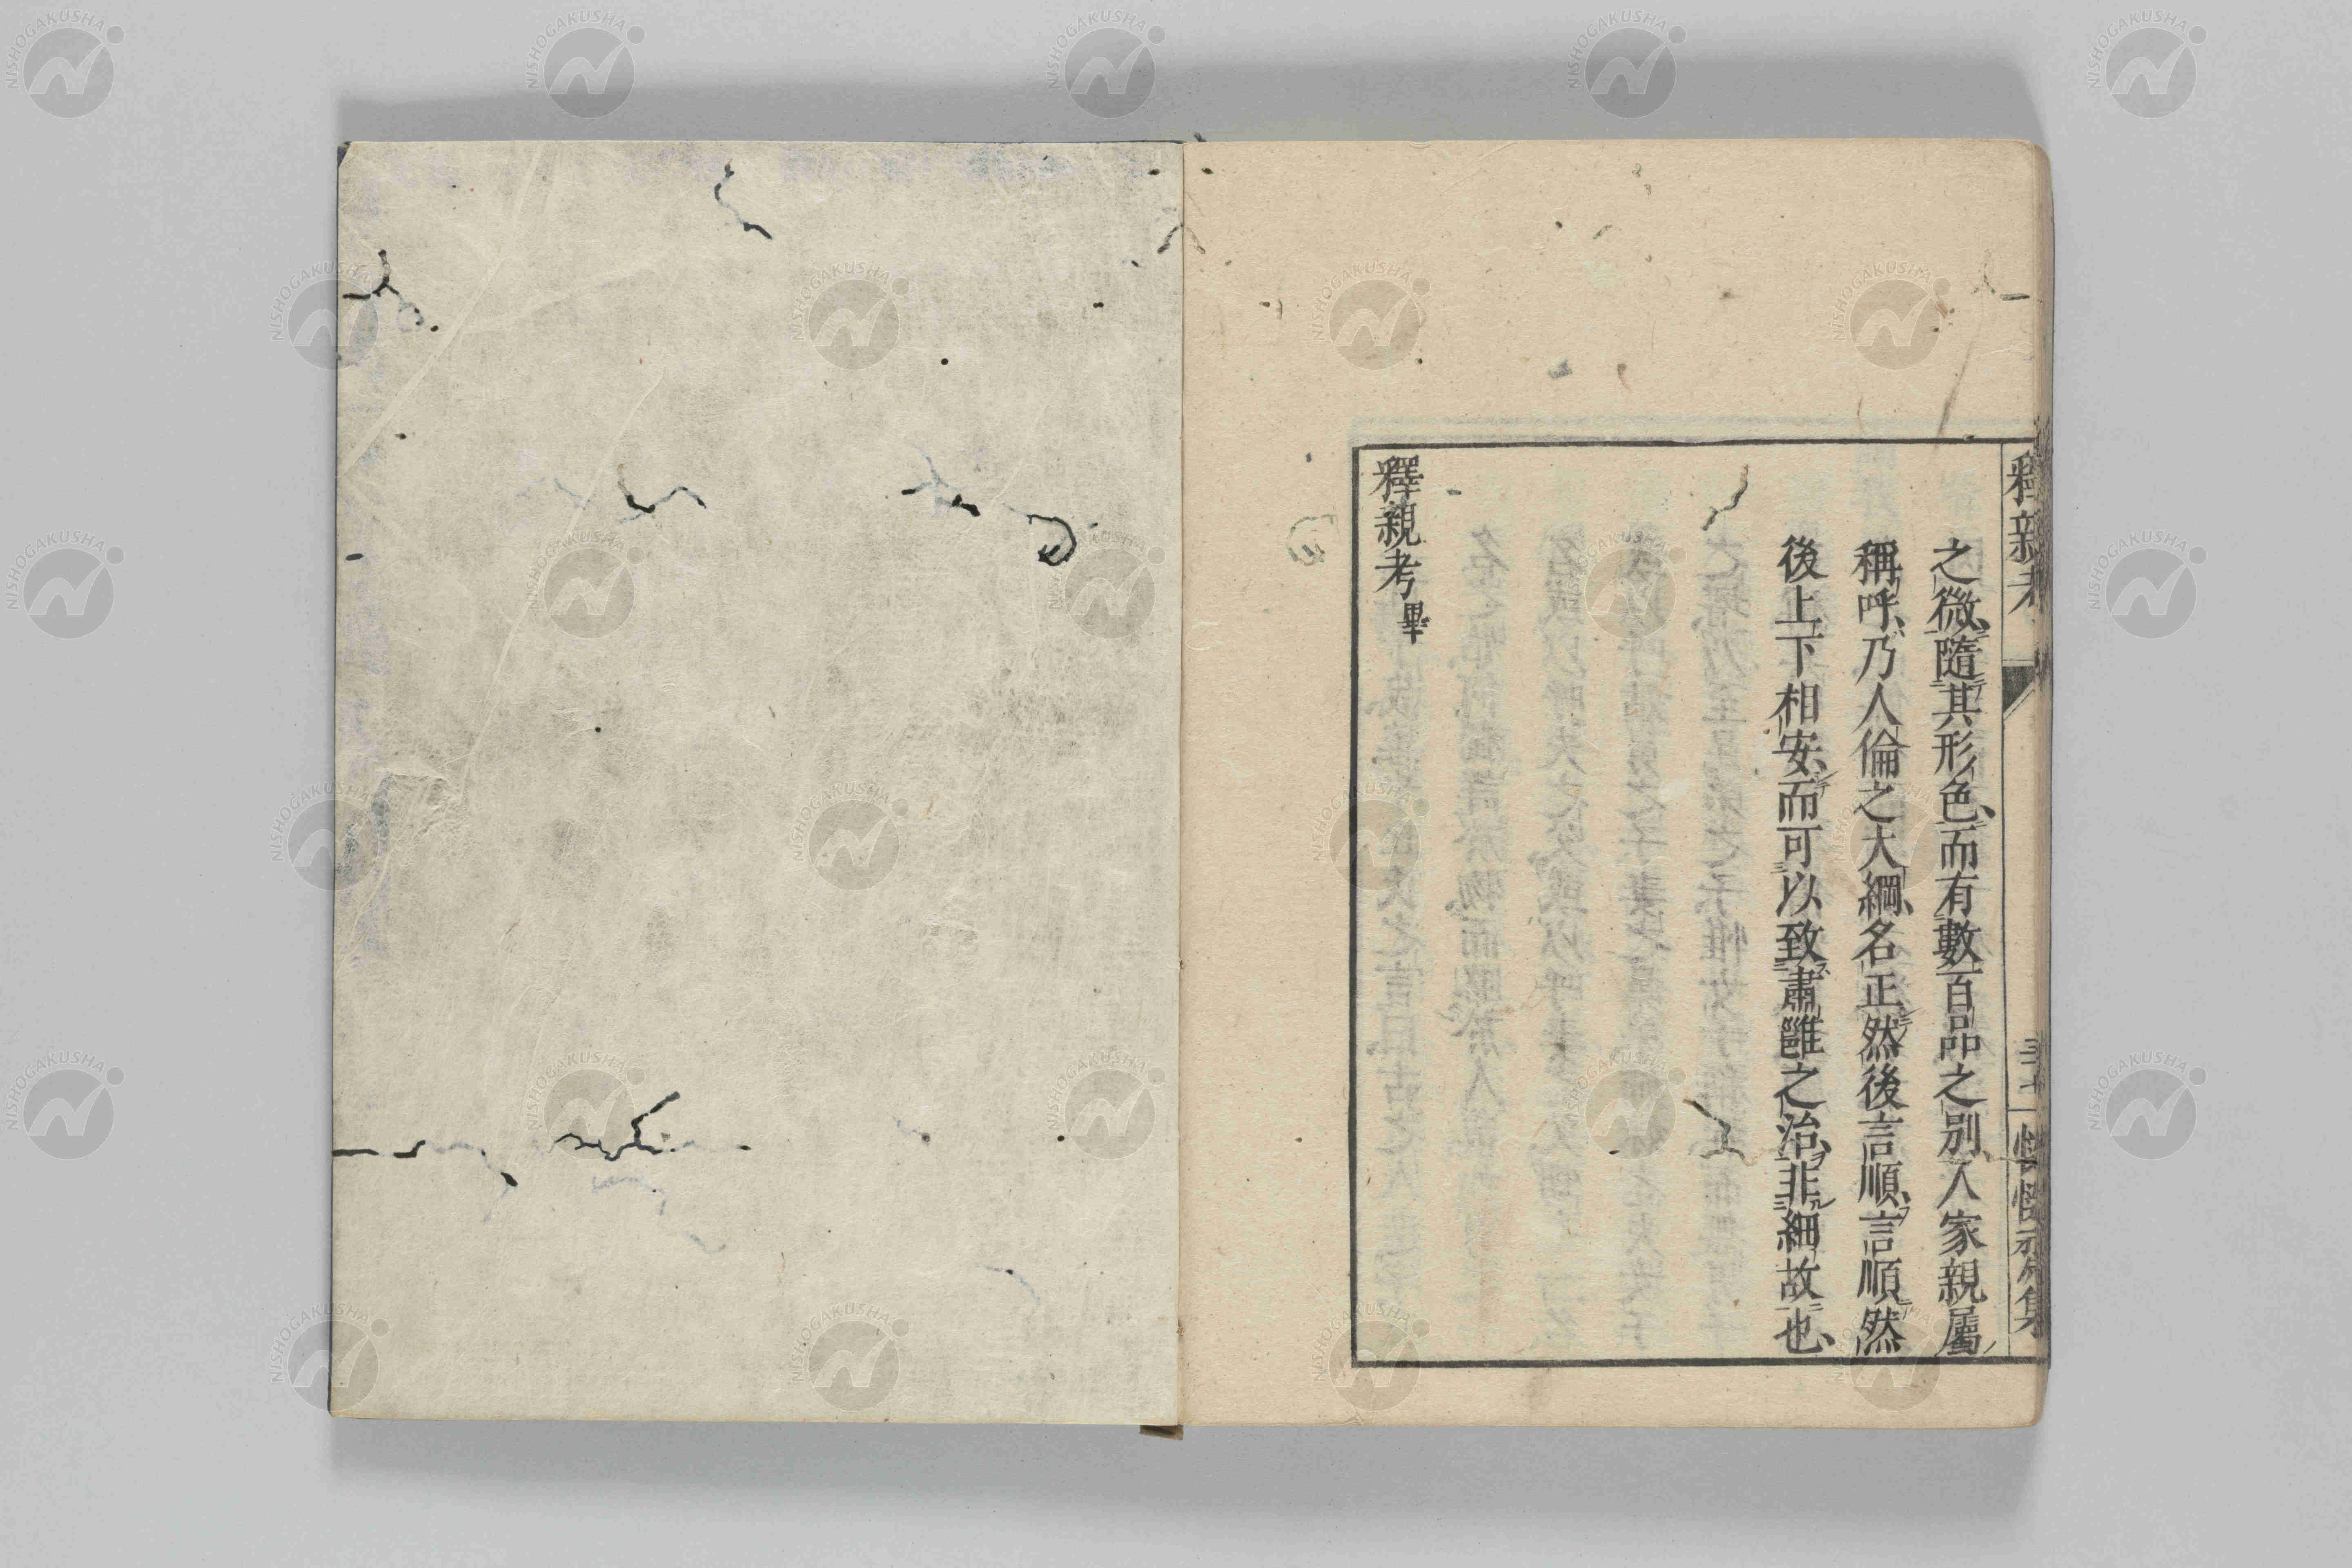 釋親考
之微、隨其形色、而有數百品之別、人家親屬
稱呼、乃人倫之大綱、名正然後言順、言順然
後上下相安、而可以致肅雝之治、非細故也、
釋親考畢
NISHOGAKUSHA